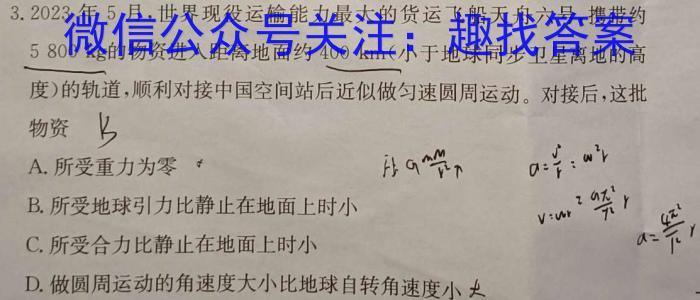 3.2023年5月,世界现役运输能力最大的货运飞船天舟六号,携带约
微信公众号关注：趣找答案
5 800 kg的物资进入距离地面约400 km(小于地球同步卫星离地的高
度)的轨道,顺利对接中国空间站后近似做匀速圆周运动。对接后,这批
物资
B
A.所受重力为零
B.所受地球引力比静止在地面上时小
C.所受合力比静止在地面上时小
D.做圆周运动的角速度大小比地球自转角速度小 大